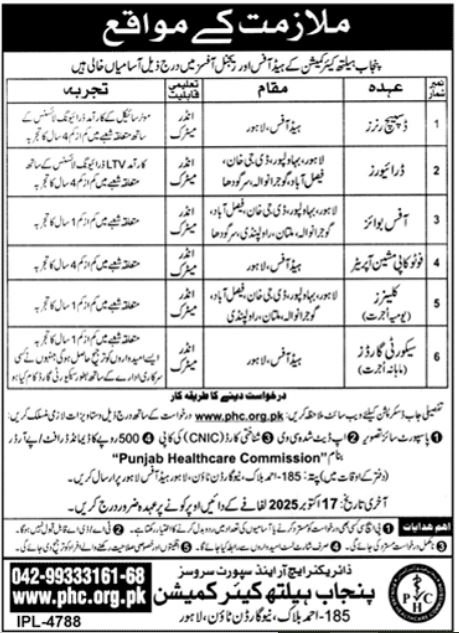 ملازمت کے مواقع
پنجاب ہیلتھ کیئر کمیشن کے ہیڈ آفس اور ریجنل آفسز میں درج ذیل آسامیاں خالی ہیں
نمبر شمار عہدہ مقام تعلیمی قابلیت تجربہ
1 ڈسپیچ رنرز ہیڈ آفس، لاہور انڈر میٹرک موٹر سائیکل کے کارآمد ڈرائیونگ لائسنس کے ساتھ متعلقہ شعبے میں کم از کم 4 سال کا تجربہ
2 ڈرائیورز لاہور، بہاولپور، ڈی جی خان، فیصل آباد، گوجرانوالہ، سرگودھا انڈر میٹرک کارآمد LTV ڈرائیونگ لائسنس کے ساتھ متعلقہ شعبے میں کم از کم 4 سال کا تجربہ
3 آفس بوائز لاہور، بہاولپور، ڈی جی خان، فیصل آباد، گوجرانوالہ، ملتان، راولپنڈی، سرگودھا انڈر میٹرک متعلقہ شعبے میں کم از کم 1 سال کا تجربہ
4 فوٹو کاپی مشین آپریٹر ہیڈ آفس، لاہور انڈر میٹرک متعلقہ شعبے میں کم از کم 4 سال کا تجربہ
5 کلینرز (یومیہ اجرت) لاہور، بہاولپور، ڈی جی خان، فیصل آباد، گوجرانوالہ، ملتان، راولپنڈی انڈر میٹرک متعلقہ شعبے میں کم از کم 1 سال کا تجربہ
6 سیکورٹی گارڈز (ماہانہ اجرت) ہیڈ آفس، لاہور انڈر میٹرک متعلقہ شعبے میں کم از کم 1 سال کا تجربہ ایسے امیدواروں کو ترجیح حاصل ہوگی جنہوں نے کسی سرکاری ادارے کے ساتھ بطور سیکورٹی گارڈ کام کیا ہو
درخواست دینے کا طریقہ کار
تفصیلی جاب ڈسکرپشن کیلئے ویب سائٹ ملاحظہ کریں: www.phc.org.pk درخواست کے ساتھ درج ذیل دستاویزات لازمی منسلک کریں:
1 پاسپورٹ سائز تصویر 2 اپ ڈیٹ شدہ سی وی 3 شناختی کارڈ (CNIC) کی کاپی 4 500 روپے کا ڈیمانڈ ڈرافٹ / پے آرڈر
بنام "Punjab Healthcare Commission"
(دفتر کے اوقات میں) پتہ: 185- احمد بلاک، نیو گارڈن ٹاؤن، لاہور پر ارسال کریں۔
آخری تاریخ: 17 اکتوبر 2025 لفافے کے دائیں اوپر کونے پر عہدہ ضرور درج کریں۔
اہم ہدایات 1 پی ایچ سی کسی بھی درخواست کو مسترد کرنے یا آسامیوں کی تعداد میں ردوبدل کرنے کا اختیار رکھتا ہے۔ 2 ٹی اے / ڈی اے قابل قبول نہیں ہوگا۔
3 نامکمل درخواست مسترد کی جائے گی۔ 4 صرف شارٹ لسٹ امیدواروں سے رابطہ کیا جائے گا۔ 5 اقلیتوں اور خصوصی صلاحیت رکھنے والے افراد کو ترجیح دی جائے گی۔
ڈائریکٹر ایچ آر اینڈ سپورٹ سروسز
پنجاب ہیلتھ کیئر کمیشن
185- احمد بلاک، نیو گارڈن ٹاؤن، لاہور
042-99333161-68
www.phc.org.pk
IPL-4788
PHC